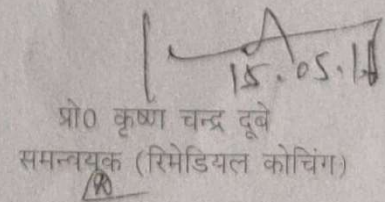 15.05.18
प्रो0 कृष्ण चन्द्र दूबे
समन्वयक (रिमेडियल कोचिंग)